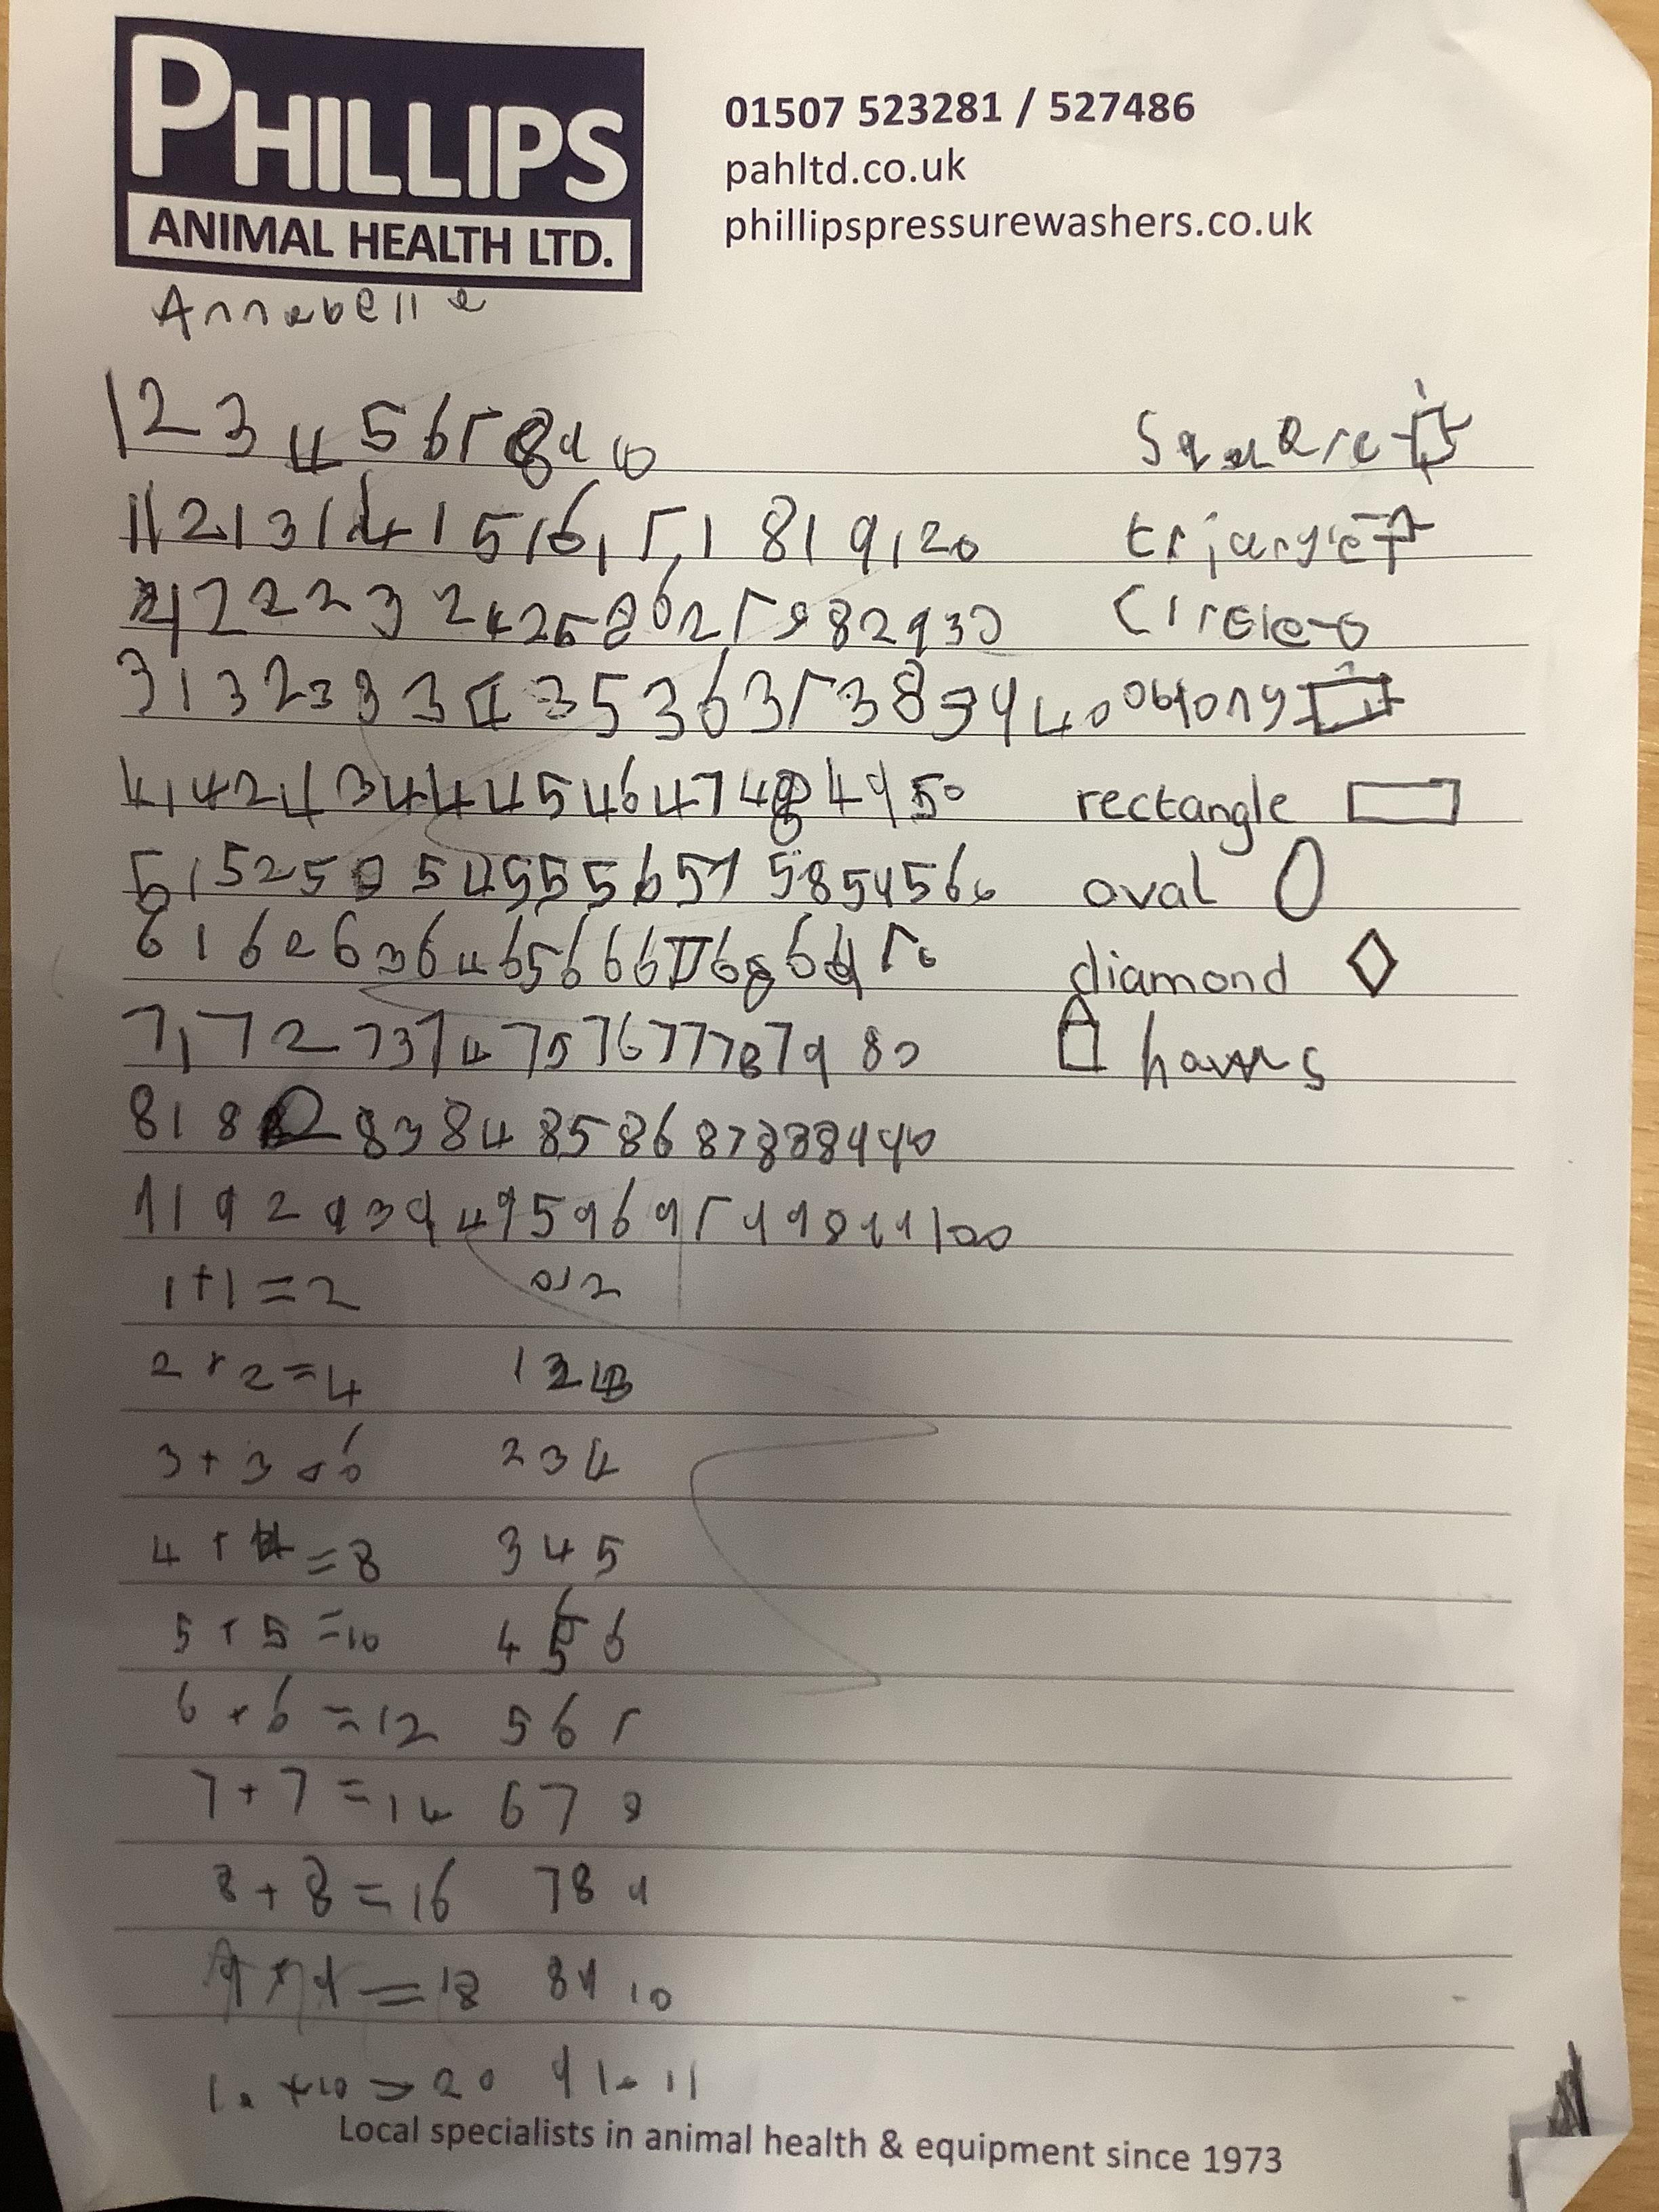 PHILLIPS
ANIMAL HEALTH LTD.
01507 523281 / 527486
pahltd.co.uk
phillipspressurewashers.co.uk
Annabelle
1 2 3 4 5 6 7 8 9 10 Square
11 12 13 14 15 16 17 18 19 20 triangle
21 22 23 24 25 26 27 28 29 30 Circle
31 32 33 34 35 36 37 38 39 40 oblong
41 42 43 44 45 46 47 48 49 50 rectangle
51 52 53 54 55 56 57 58 59 60 oval
61 62 63 64 65 66 67 68 69 70 diamond
71 72 73 74 75 76 77 78 79 80
81 82 83 84 85 86 87 88 89 90
91 92 93 94 95 96 97 99 98 99 100
1+1=2 012
2+2=4 1 2 3
3+3=6 2 3 4
4+4=8 3 4 5
5+5=10 4 5 6
6+6=12 5 6 7
7+7=14 6 7 8
8+8=16 7 8 9
9+9=18 8 9 10
10+10=20 9 10 11
Local specialists in animal health & equipment since 1973